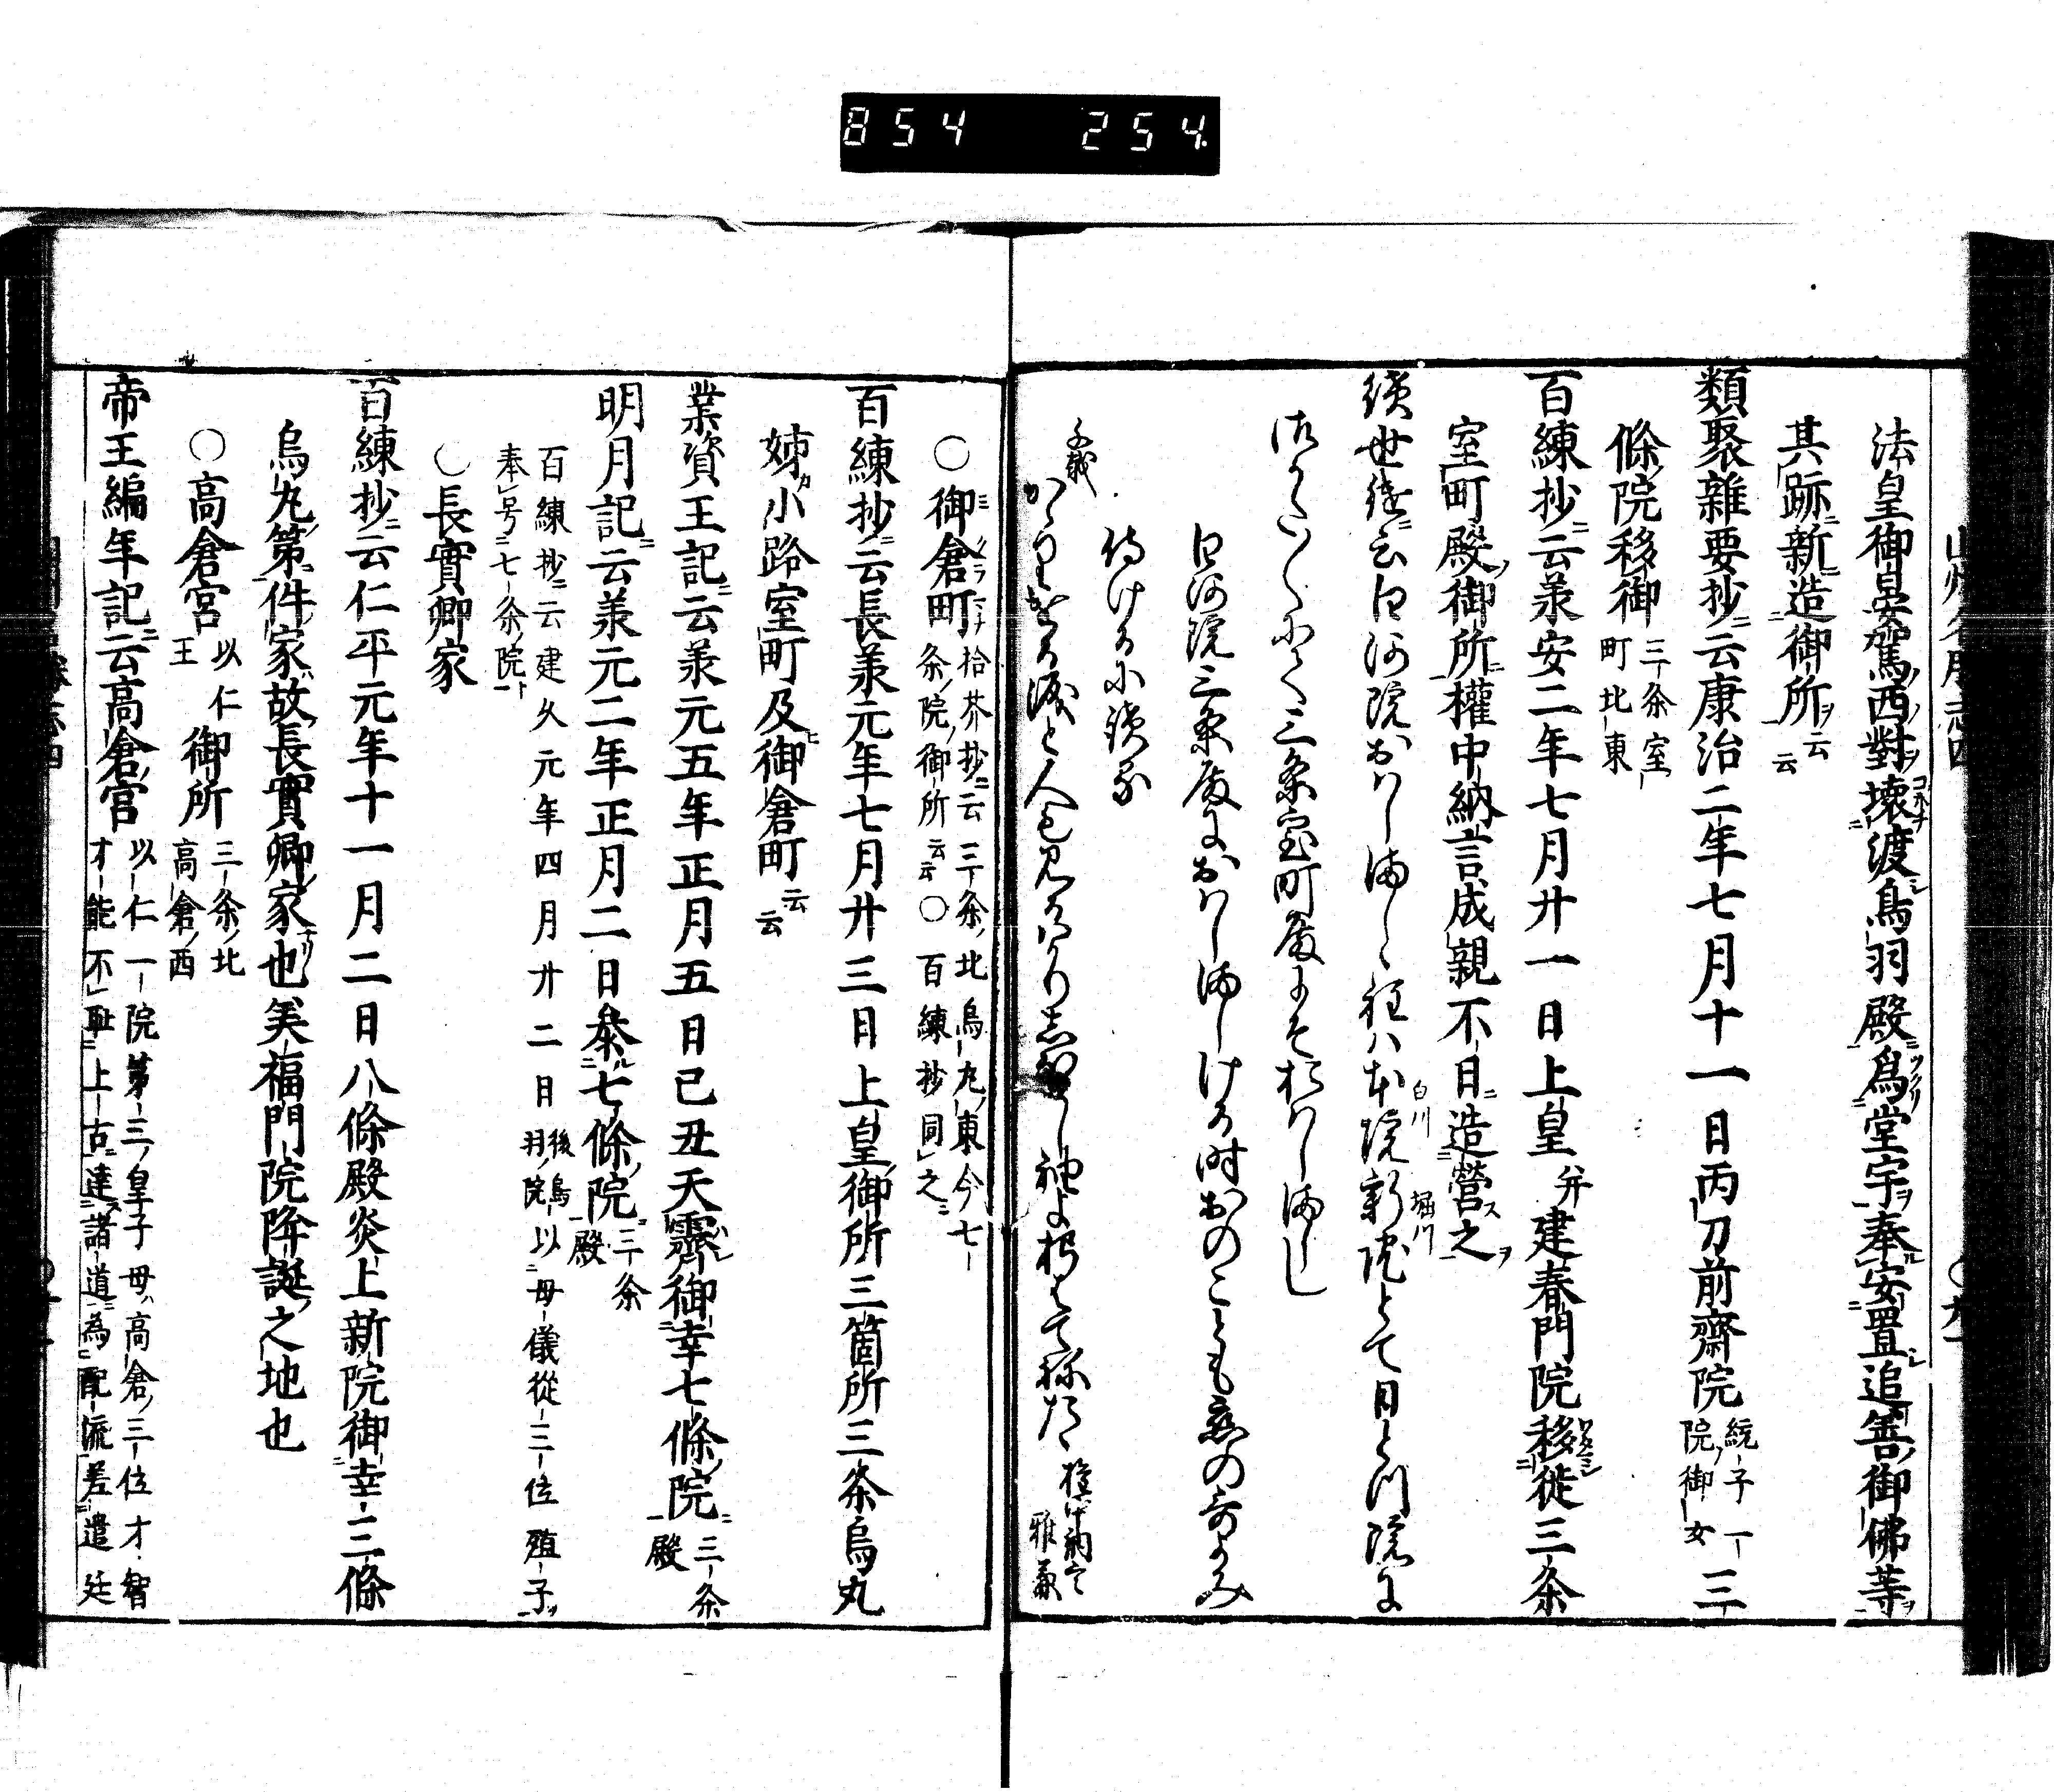 854 254
法皇御晏駕西對壊渡鳥羽殿爲堂宇奉安置追善御佛等
其跡新造御所云云
類聚雜要抄云康治二年七月十一日丙刀前齋院統子一院御女三
條院移御三条室町北東
百練抄云羕安二年七月廿一日上皇并建春門院移徙三条
室町殿御所權中納言成親不日造營之
続世継云白河院おはしましゝ程は本院新院とて
三条室町殿にそおはしましし
白河院三条殿におはしましける時おのことも恋の哥よみ
侍けるに読る
千載
かくりける涙と人も見るはかりしほらし袖よ朽はてねたゝ
雅兼
〇御倉町拾芥抄云三条北烏丸東今七条院御所云云〇百練抄同之
百練抄云長羕元年七月廿三日上皇御所三箇所三条烏丸
姉小路室町及御倉町云云
業資王記云羕元五年正月五日己丑天霽御幸七條院三条殿
明月記云羕元二年正月二日參七條院三条殿
百練抄云建久元年四月廿二日後鳥羽院以母儀從三位殖子
奉号七条院
〇長實卿家
百練抄云仁平元年十一月二日八條殿炎上新院御幸三條
烏丸第件家故長實卿家也美福門院降誕之地也
〇高倉宮以仁王御所三条北高倉西
帝王編年記云高倉宮以仁一院第三皇子母高倉三位才智
才能不恥上古達諸道為配流差遣廷